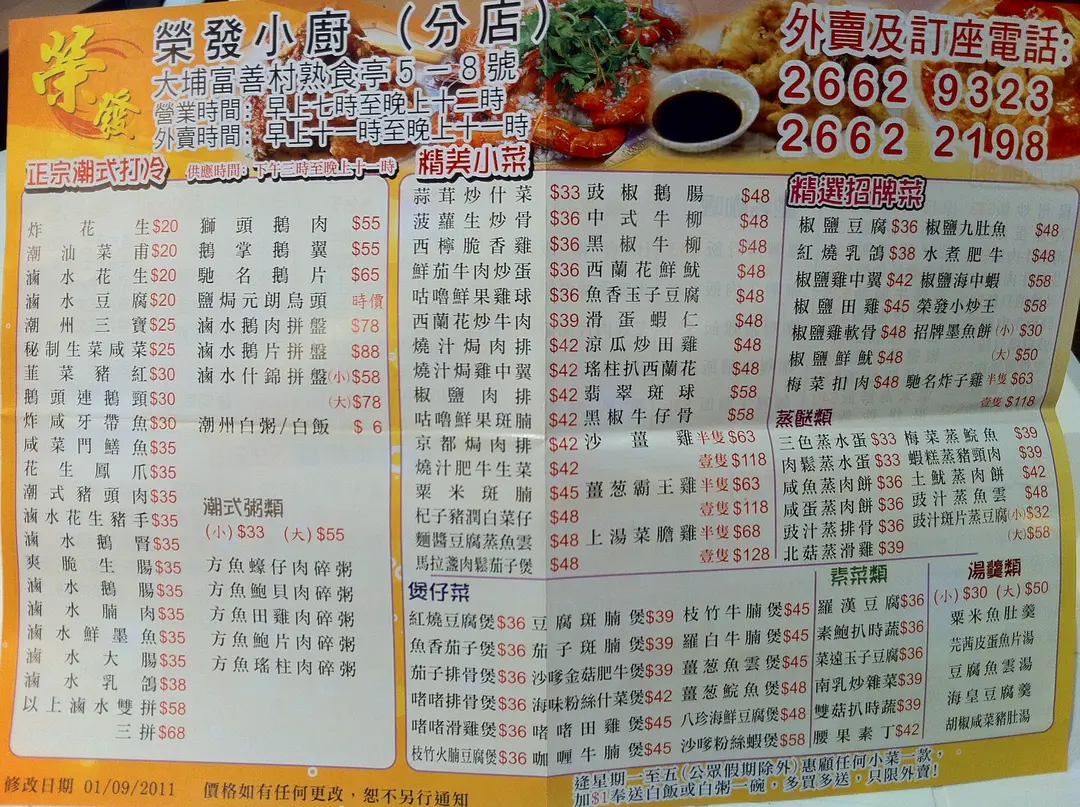 榮發
榮發小廚（分店）
大埔富善村熟食亭5－8號
營業時間：早上七時至晚上十二時
外賣時間：早上十一時至晚上十一時
外賣及訂座電話:
2662 9323
2662 2198
正宗潮式打冷 供應時間：下午三時至晚上十一時
炸花生$20
潮汕菜甫$20
滷水花生$20
滷水豆腐$20
潮州三寶$25
秘制生菜咸菜$25
韮菜豬紅$30
鵝頭連鵝頸$30
炸咸牙帶魚$30
咸菜門鱔魚$35
花生鳳爪$35
潮式豬頭肉$35
滷水花生豬手$35
滷水鵝腎$35
爽脆生腸$35
滷水鵝腸$35
滷水腩肉$35
滷水鮮墨魚$35
滷水大腸$35
滷水乳鴿$38
以上滷水雙拼$58
三拼$68
獅頭鵝肉 $55
鵝掌鵝翼 $55
馳名鵝片 $65
鹽焗元朗烏頭 時價
滷水鵝肉拼盤 $78
滷水鵝片拼盤 $88
滷水什錦拼盤(小)$58
(大)$78
潮州白粥/白飯 $ 6
潮式粥類
(小)$33 (大)$55
方魚蠔仔肉碎粥
方魚鮑貝肉碎粥
方魚田雞肉碎粥
方魚鮑片肉碎粥
方魚瑤柱肉碎粥
精美小菜
蒜茸炒什菜 $33
菠蘿生炒骨 $36
西檸脆香雞 $36
鮮茄牛肉炒蛋 $36
咕嚕鮮果雞球 $36
西蘭花炒牛肉 $39
燒汁焗肉排 $42
燒汁焗雞中翼 $42
椒鹽肉排 $42
咕嚕鮮果斑腩 $42
京都焗肉排 $42
燒汁肥牛生菜 $42
粟米斑腩 $45
杞子豬潤白菜仔 $48
麵醬豆腐蒸魚雲 $48
馬拉盞肉鬆茄子煲 $48
豉椒鵝腸 $48
中式牛柳 $48
黑椒牛柳 $48
西蘭花鮮魷 $48
魚香玉子豆腐 $48
滑蛋蝦仁 $48
涼瓜炒田雞 $48
瑤柱扒西蘭花 $48
翡翠斑球 $58
黑椒牛仔骨 $58
沙薑雞 半隻$63
壹隻$118
薑葱霸王雞 半隻$63
壹隻$118
上湯菜膽雞 半隻$68
壹隻$128
精選招牌菜
椒鹽豆腐$36 椒鹽九肚魚 $48
紅燒乳鴿$38 水煮肥牛 $48
椒鹽雞中翼$42 椒鹽海中蝦 $58
椒鹽田雞$45 榮發小炒王 $58
椒鹽雞軟骨$48 招牌墨魚餅(小)$30
椒鹽鮮魷$48 (大)$50
梅菜扣肉$48 馳名炸子雞半隻$63
壹隻$118
蒸餸類
三色蒸水蛋$33 梅菜蒸鯇魚 $39
肉鬆蒸水蛋$33 蝦糕蒸豬頸肉 $39
咸魚蒸肉餅$36 土魷蒸肉餅 $42
咸蛋蒸肉餅$36 豉汁蒸魚雲 $48
豉汁蒸排骨$36 豉汁斑片蒸豆腐(小)$32
北菇蒸滑雞$39 (大)$58
煲仔菜
紅燒豆腐煲$36 豆腐斑腩煲$39 枝竹牛腩煲$45
魚香茄子煲$36 茄子斑腩煲$39 羅白牛腩煲$45
茄子排骨煲$36 沙嗲金菇肥牛煲$39 薑葱魚雲煲$45
啫啫排骨煲$36 海味粉絲什菜煲$42 薑葱鯇魚煲$48
啫啫滑雞煲$36 啫啫田雞煲$45 八珍海鮮豆腐煲$48
枝竹火腩豆腐煲$36 咖喱牛腩煲$45 沙嗲粉絲蝦煲$58
素菜類
羅漢豆腐$36
素鮑扒時蔬$36
菜遠玉子豆腐$36
南乳炒雜菜$39
雙菇扒時蔬$39
腰果素丁$42
湯羹類
(小)$30 (大)$50
粟米魚肚羹
芫茜皮蛋魚片湯
豆腐魚雲湯
海皇豆腐羹
胡椒咸菜豬肚湯
逢星期一至五(公眾假期除外)惠顧任何小菜一款，
加$1奉送白飯或白粥一碗，多買多送，只限外賣！
修改日期 01/09/2011 價格如有任何更改，恕不另行通知